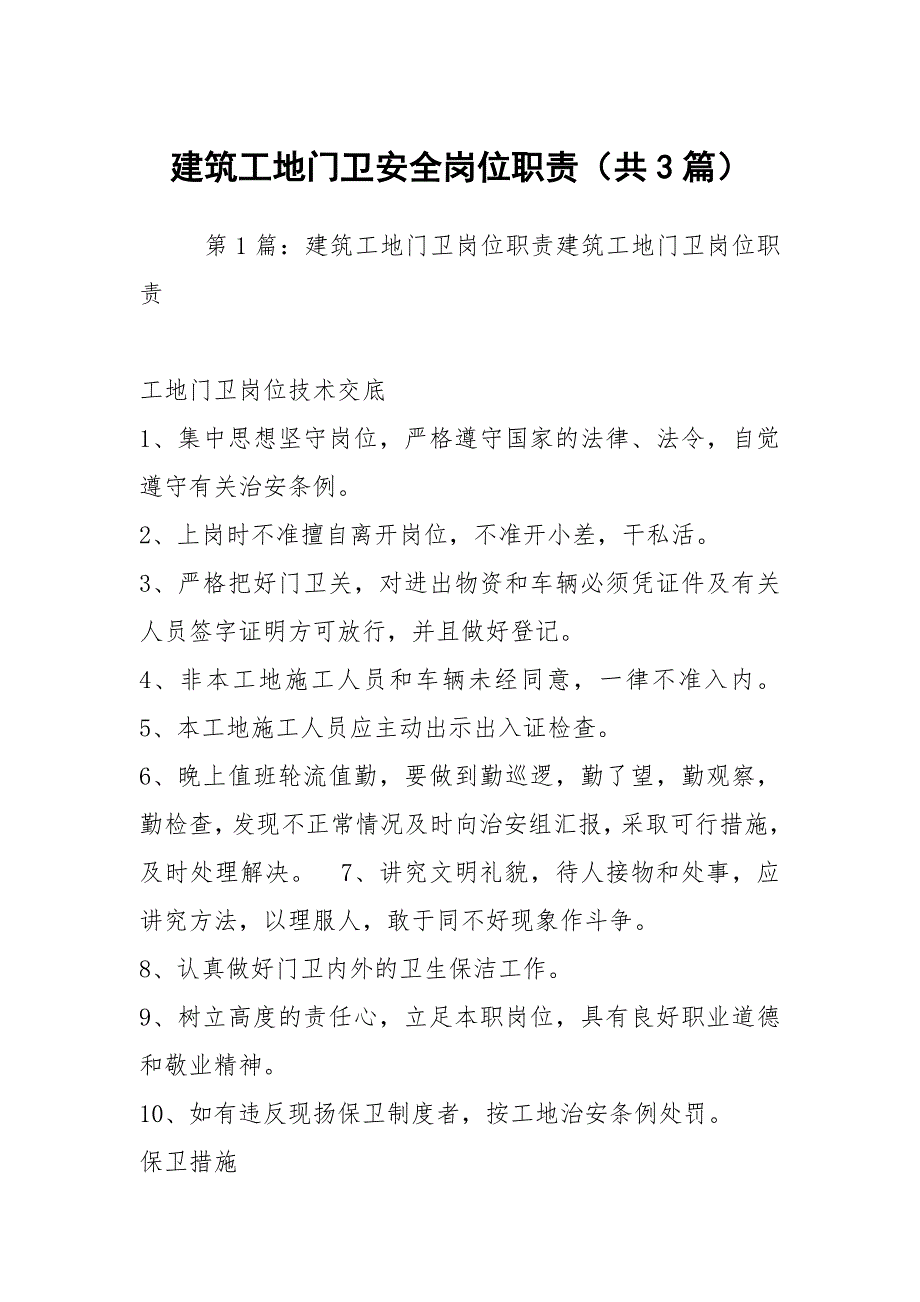 建筑工地门卫安全岗位职责（共 3 篇）
第 1 篇：建筑工地门卫岗位职责建筑工地门卫岗位职
责
工地门卫岗位技术交底
1、集中思想坚守岗位，严格遵守国家的法律、法令，自觉
遵守有关治安条例。
2、上岗时不准擅自离开岗位，不准开小差，干私活。
3、严格把好门卫关，对进出物资和车辆必须凭证件及有关
人员签字证明方可放行，并且做好登记。
4、非本工地施工人员和车辆未经同意，一律不准入内。
5、本工地施工人员应主动出示出入证检查。
6、晚上值班轮流值勤，要做到勤巡逻，勤了望，勤观察，
勤检查，发现不正常情况及时向治安组汇报，采取可行措施，
及时处理解决。 7、讲究文明礼貌，待人接物和处事，应
讲究方法，以理服人，敢于同不好现象作斗争。
8、认真做好门卫内外的卫生保洁工作。
9、树立高度的责任心，立足本职岗位，具有良好职业道德
和敬业精神。
10、如有违反现扬保卫制度者，按工地治安条例处罚。
保卫措施